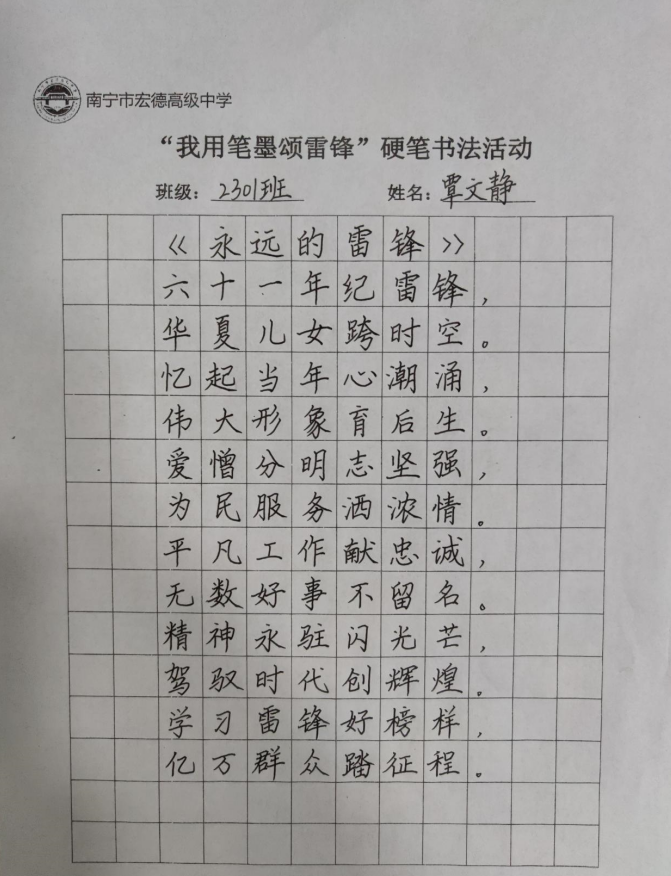 南宁市宏德高级中学
“我用笔墨颂雷锋”硬笔书法活动
班级：2301班 姓名：覃文静
《永远的雷锋》
六十一年纪雷锋，
华夏儿女跨时空。
忆起当年心潮涌，
伟大形象育后生。
爱憎分明志坚强，
为民服务洒浓情。
平凡工作献忠诚，
无数好事不留名。
精神永驻闪光芒，
驾驭时代创辉煌。
学习雷锋好榜样，
亿万群众踏征程。